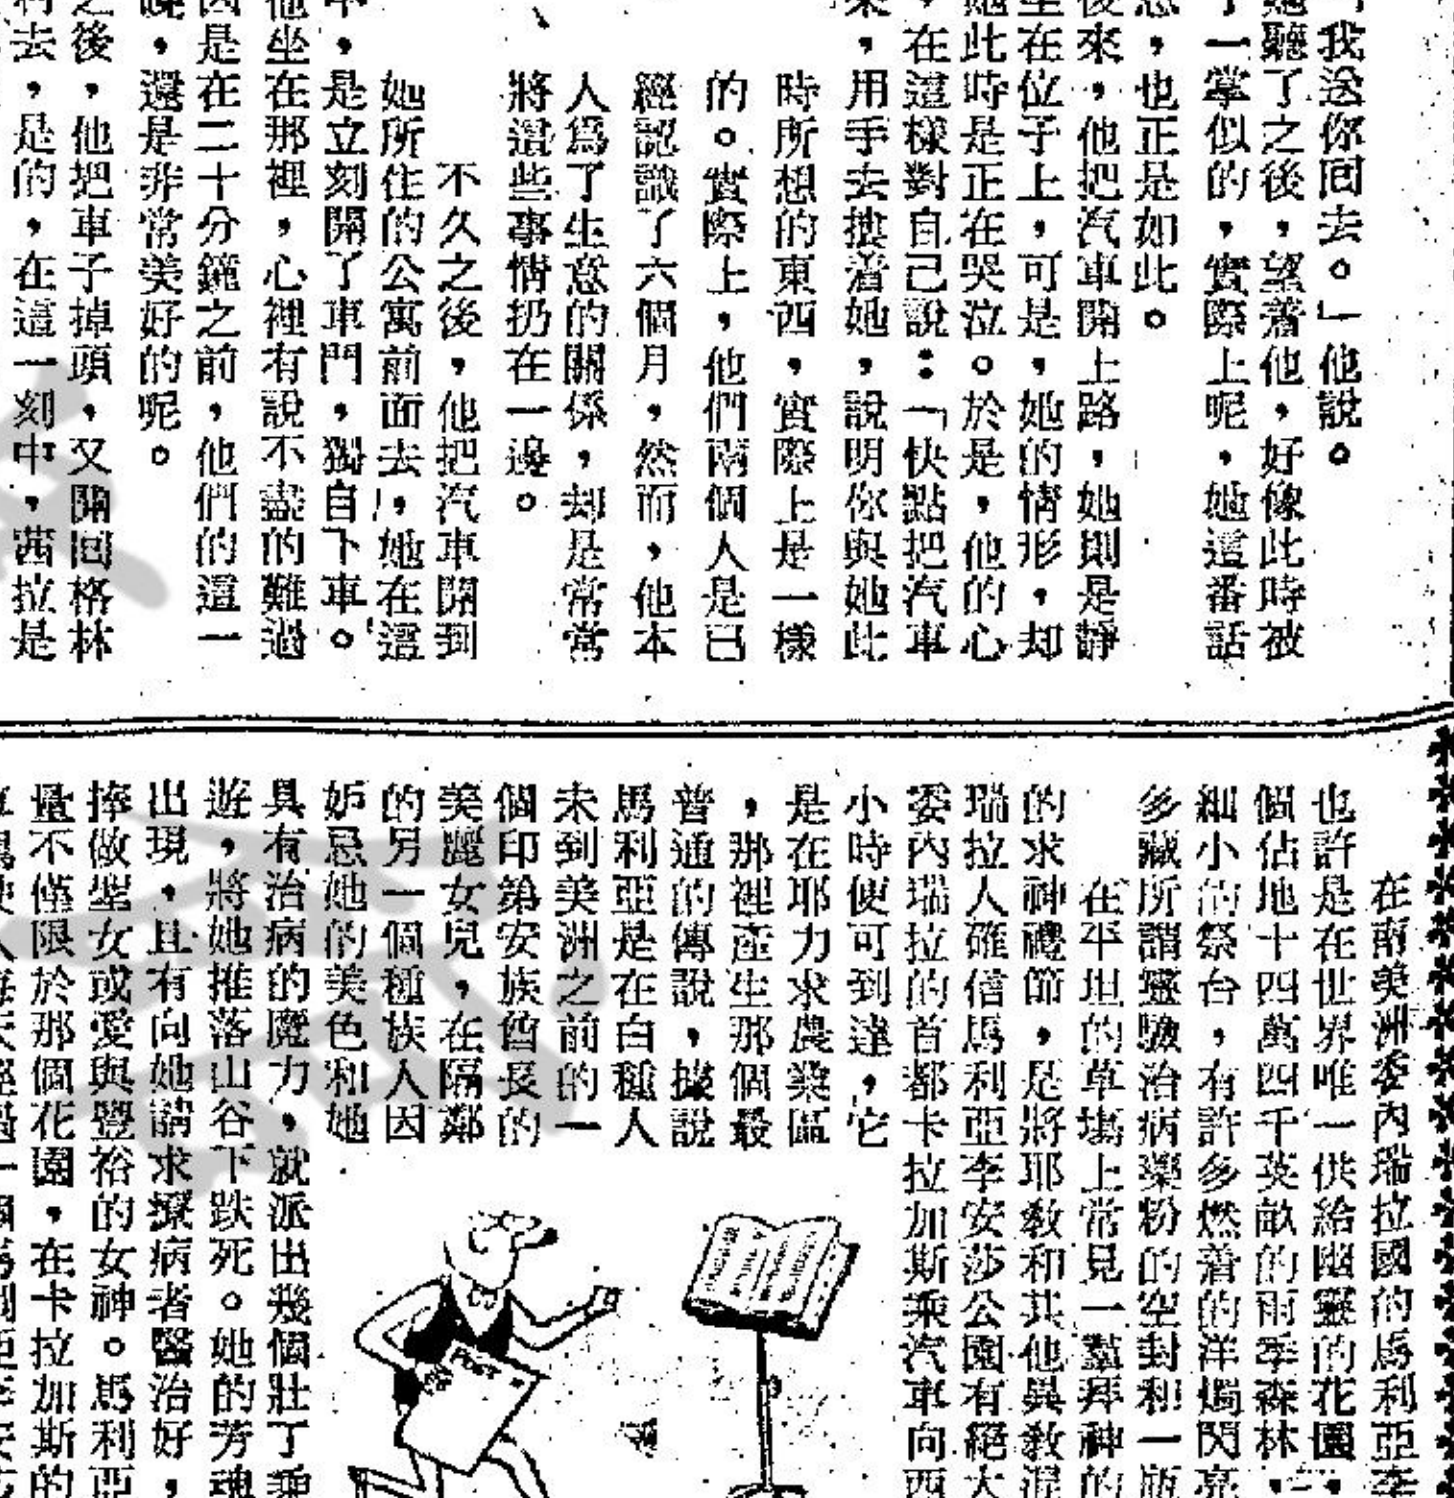 「我送你回去。」他說。
她聽了之後，望着他，好像此時被
了一掌似的，實際上呢，她這番話
，也正是如此。
後來，他把汽車開上路，她則是靜
坐在位子上，可是，她的情形，却
她此時是正在哭泣。於是，他的心
，在這樣對自己說：「快點把汽車
來，用手去摟着她，說明你與她此
時所想的東西，實際上是一樣
的。實際上，他們兩個人是已
經認識了六個月，然而，他本
人爲了生意的關係，却是常常
將這些事情扔在一邊。
不久之後，他把汽車開到
她所住的公寓前面去，她在這
中，是立刻開了車門，獨自下車。
他坐在那裡，心裡有說不盡的難過
因是在二十分鐘之前，他們的這一
晚，還是非常美好的呢。
之後，他把車子掉頭，又開回格林
去，是的，在這一刻中，茜拉是
在南美洲委內瑞拉國的馬利亞李
也許是在世界唯一供給幽靈的花園，
個佔地十四萬四千英畝的雨季森林，
細小的祭台，有許多燃着的洋燭閃亮
多藏所謂靈驗治病藥粉的空封和一瓶
在平坦的草塲上常見一羣拜神的
的求神禮節，是將耶教和其他異教混
瑞拉人確信馬利亞李安莎公園有絕大
委內瑞拉的首都卡拉加斯乘汽車向西
小時便可到達，它
是在耶力求農業區
，那裡產生那個最
普通的傳說，據說
馬利亞是在白種人
未到美洲之前的一
個印第安族酋長的
美麗女兒，在隔鄰
的另一個種族人因
妒忌她的美色和她
具有治病的魔力，就派出幾個壯丁乘
遊，將她推落山谷下跌死。她的芳魂
出現，且有向她請求療病者醫治好，
捧做聖女或愛與豐裕的女神。馬利亞
量不僅限於那個花園，在卡拉加斯的